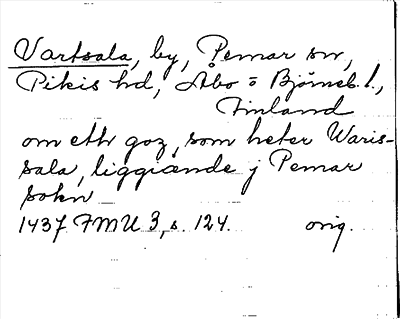 Vartsala, by, Pemar sn,
Pikis hd, Åbo o Björneb. l.,
Finland
om eth goz, som heter Waris-
sala, liggiande j Pemar
sokn
1437 FMU 3, s. 124. orig.